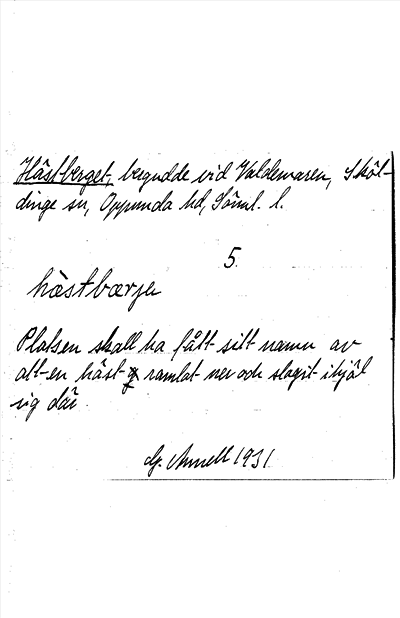 Hästberget, bergudde vid Valdemaren, Sköl-
dinge sn, Oppunda hd, Söml. l.
5.
hästbærjə
Platsen skall ha fått sitt namn av
att en häst ramlat ner och slagit ihjäl
sig där.
G. Annell 1931